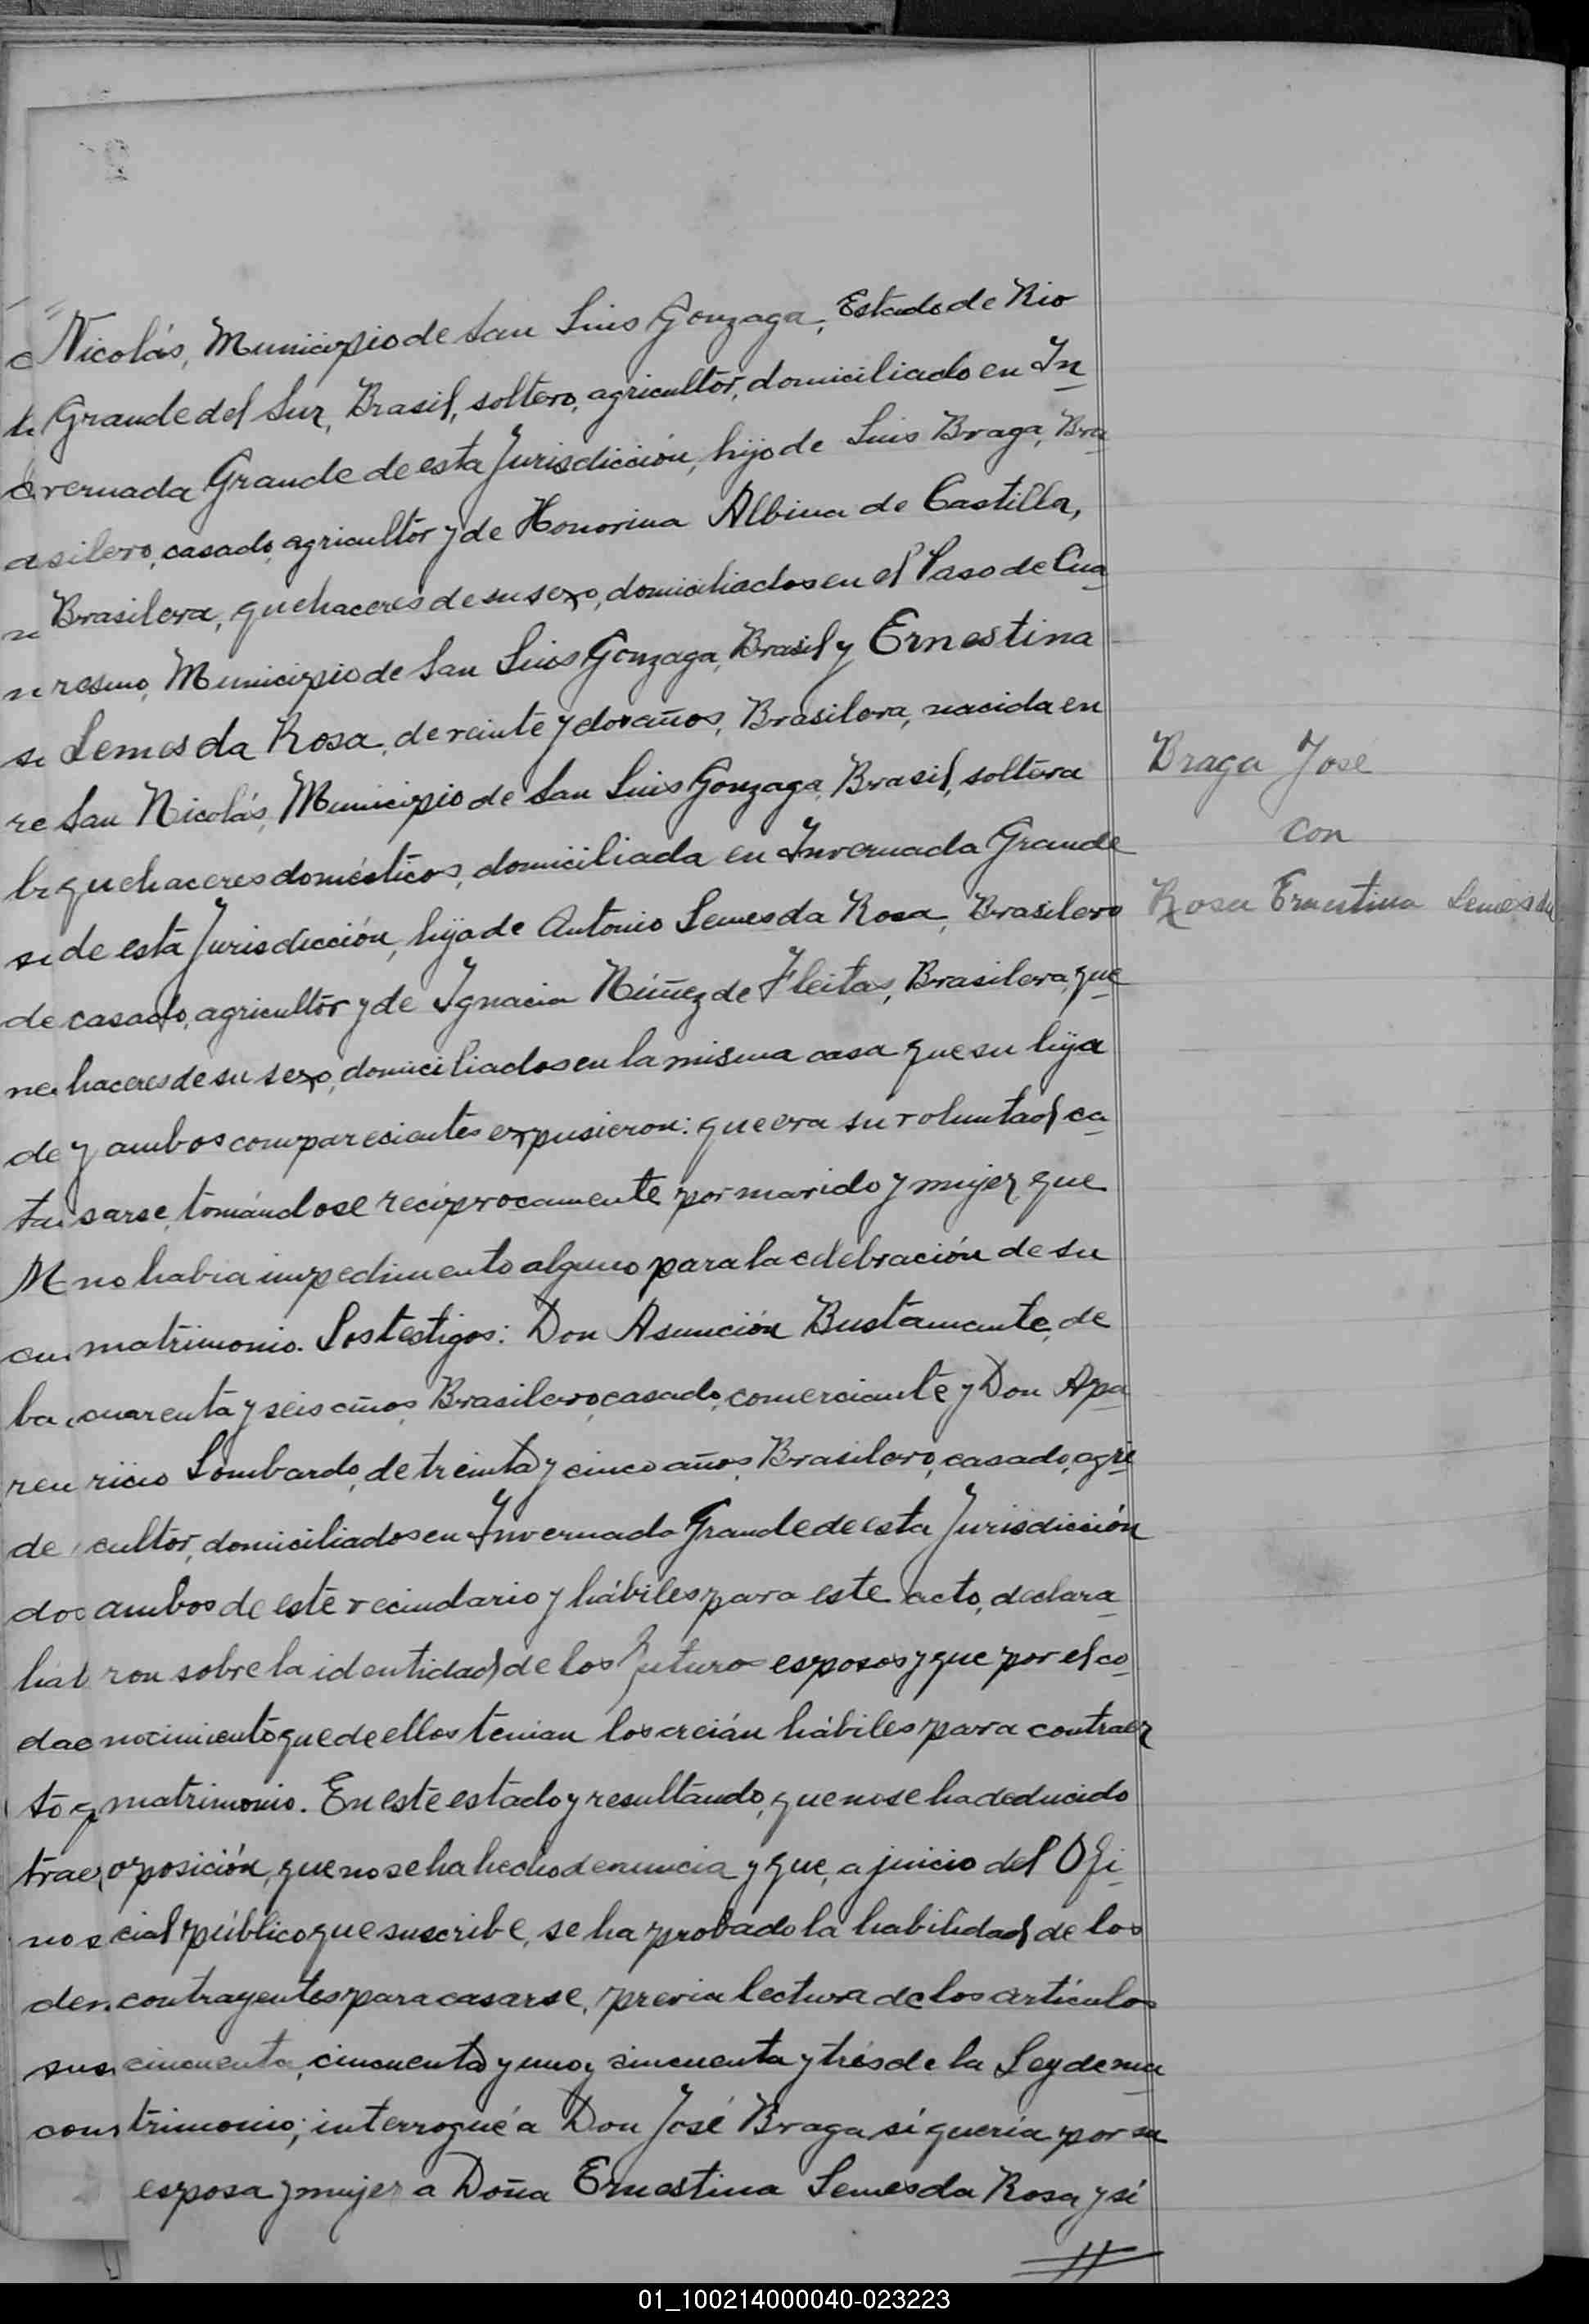 Nicolás, Municipio de San Luis Gonzaga, Estado de Rio
Grande del Sur, Brasil, soltero, agricultor, domiciliado en In
vernada Grande de esta Jurisdicción, hijo de Luis Braga, Bra
silero, casado, agricultor y de Honorina Albina de Castilla,
Brasilera, quehaceres de su sexo, domiciliados en el Paso de Cua
resmo, Municipio de San Luis Gonzaga, Brasil y Ernestina
Lemes da Rosa, de veinte y dos años, Brasilera, nacida en
San Nicolás, Municipio de San Luis Gonzaga, Brasil, soltera
quehaceres domésticos, domiciliada en Invernada Grande
de esta Jurisdicción, hija de Antonio Lemes da Rosa, Brasilero
casado, agricultor y de Ignacia Núñez de Fleitas, Brasilera, que
haceres de su sexo, domiciliados en la misma casa que su hija
y ambos comparecientes expusieron: que era su voluntad ca
sarse, tomándose recíprocamente por marido y mujer, que
no habia impedimento alguno para la celebración de su
matrimonio. Los testigos: Don Asunción Bustamante, de
cuarenta y seis años, Brasilero, casado, comerciante y Don Apa
ricio Lombardo, de treinta y cinco años, Brasilero, casado, agri
cultor, domiciliados en Invernada Grande de esta Jurisdicción
ambos de este vecindario y hábiles para este acto, declara
ron sobre la identidad de los futuros esposos y que por el co
nocimiento que de ellos tenian los creián hábiles para contraer
matrimonio. En este estado y resultando, que no se ha deducido
oposición, que no se ha hecho denuncia y que, a juicio del Ofi
cial público que suscribe, se ha probado la habilidad de los
contrayentes para casarse, previa lectura de los artículos
cincuenta, cincuenta y uno y cincuenta y trés de la Ley de ma
trimonio; interrogué a Don José Braga si queria por su
esposa y mujer a Doña Ernestina Lemes da Rosa y si
Braga José
con
Rosa Ernestina Lemes da
01_100214000040-023223